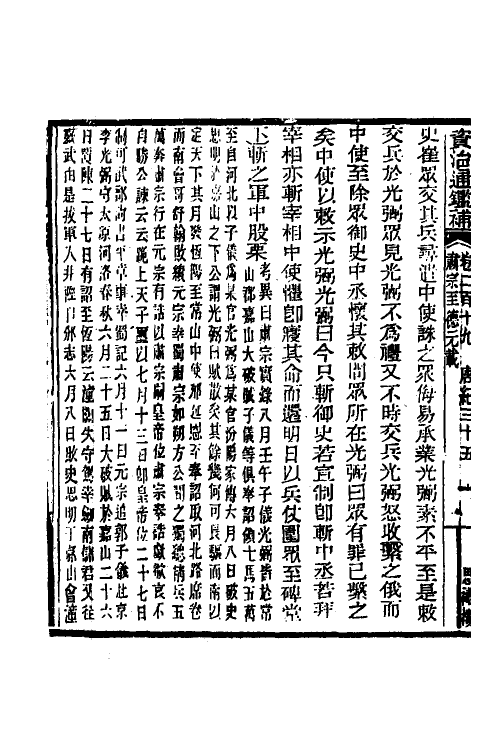 資治通鑑補 卷二百十九 唐紀三十五 肅宗至德元載 一 思補樓
史崔眾交其兵尋遣中使誅之眾侮易承業光弼素不平至是敕
交兵於光弼眾見光弼不為禮又不時交兵光弼怒收繫之俄而
中使至除眾御史中丞懷其敕問眾所在光弼曰眾有罪已繫之
矣中使以敕示光弼光弼曰今只斬御史若宣制即斬中丞若拜
宰相亦斬宰相中使懼即寢其命而還明日以兵仗圍眾至碑堂
下斬之軍中股栗考異曰肅宗實錄八月壬午子儀光弼皆於常
山郡嘉山大破賊子儀等俱奉詔領士馬五萬
至自河北以子儀為某官光弼為某官汾陽家傳六月八日破史
思明於嘉山之下公謂光弼曰賊散矣其餘幾何可長驅而南以
定天下其月發恆陽至常山中使邢延恩至奉詔取河北路席卷
而南會哥舒翰敗績元宗幸蜀肅宗如朔方公聞之獨總精兵五
萬奔肅宗行在元宗有誥以肅宗嗣皇帝位肅宗奉誥歔欷哀不
自勝公諫云云跪上天子璽以七月十三日即皇帝位二十七日
制可武部尚書平章事幸蜀記六月十一日元宗追郭子儀赴京
李光弼守太原河洛春秋六月二十五日大破賊於嘉山二十六
日覆陳二十七日有詔至恆陽云潼關失守駕幸劍南儲君又往
靈武由是拔軍入井陘口邠志六月八日敗史思明于嘉山會潼